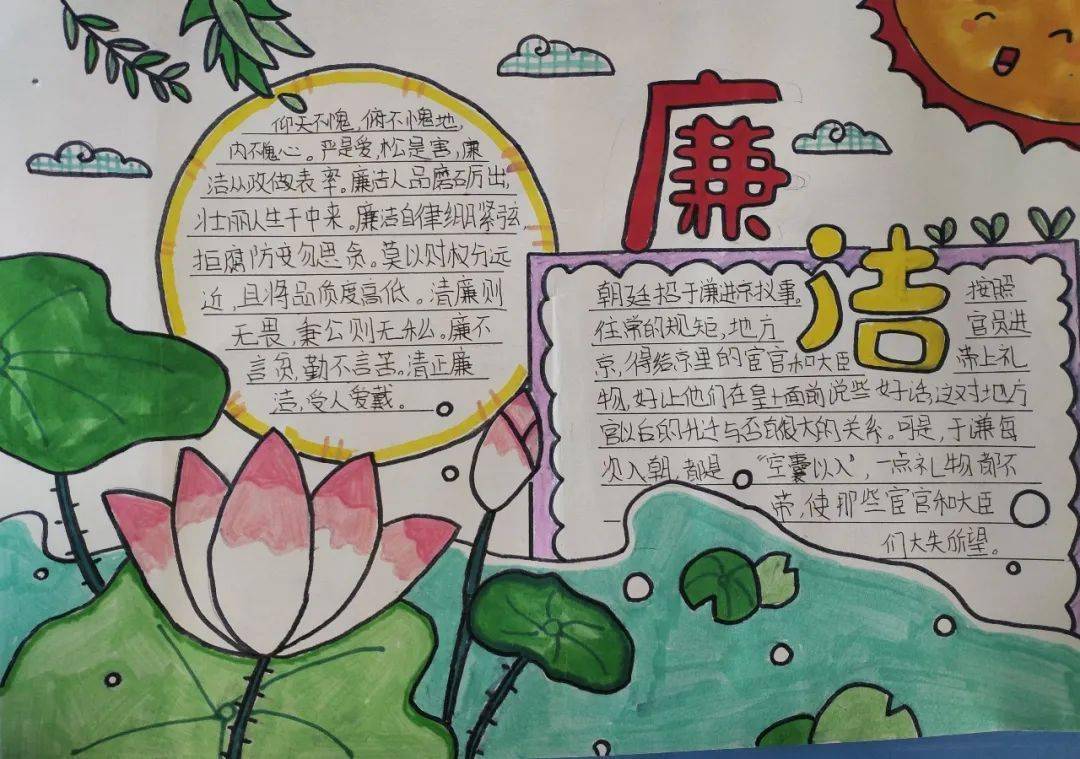 廉洁
仰天不愧,俯不愧地,
内不愧心。严是爱,松是害,廉
洁从政做表率。廉洁人品磨砺出,
壮丽人生干中来。廉洁自律绷紧弦,
拒腐防变勿思贪。莫以财权分远
近,且将品质度高低。清廉则
无畏,秉公则无私。廉不
言贫,勤不言苦。清正廉
洁,受人爱戴。
朝廷招于谦进京叙事。按照
往常的规矩,地方官员进
京,得给京里的宦官和大臣带上礼
物,好让他们在皇上面前说些好话,这对地方
官以后的升迁与否有很大的关系。可是,于谦每
次入朝,都是“空囊以入”,一点礼物都不
带,使那些宦官和大臣
们大失所望。